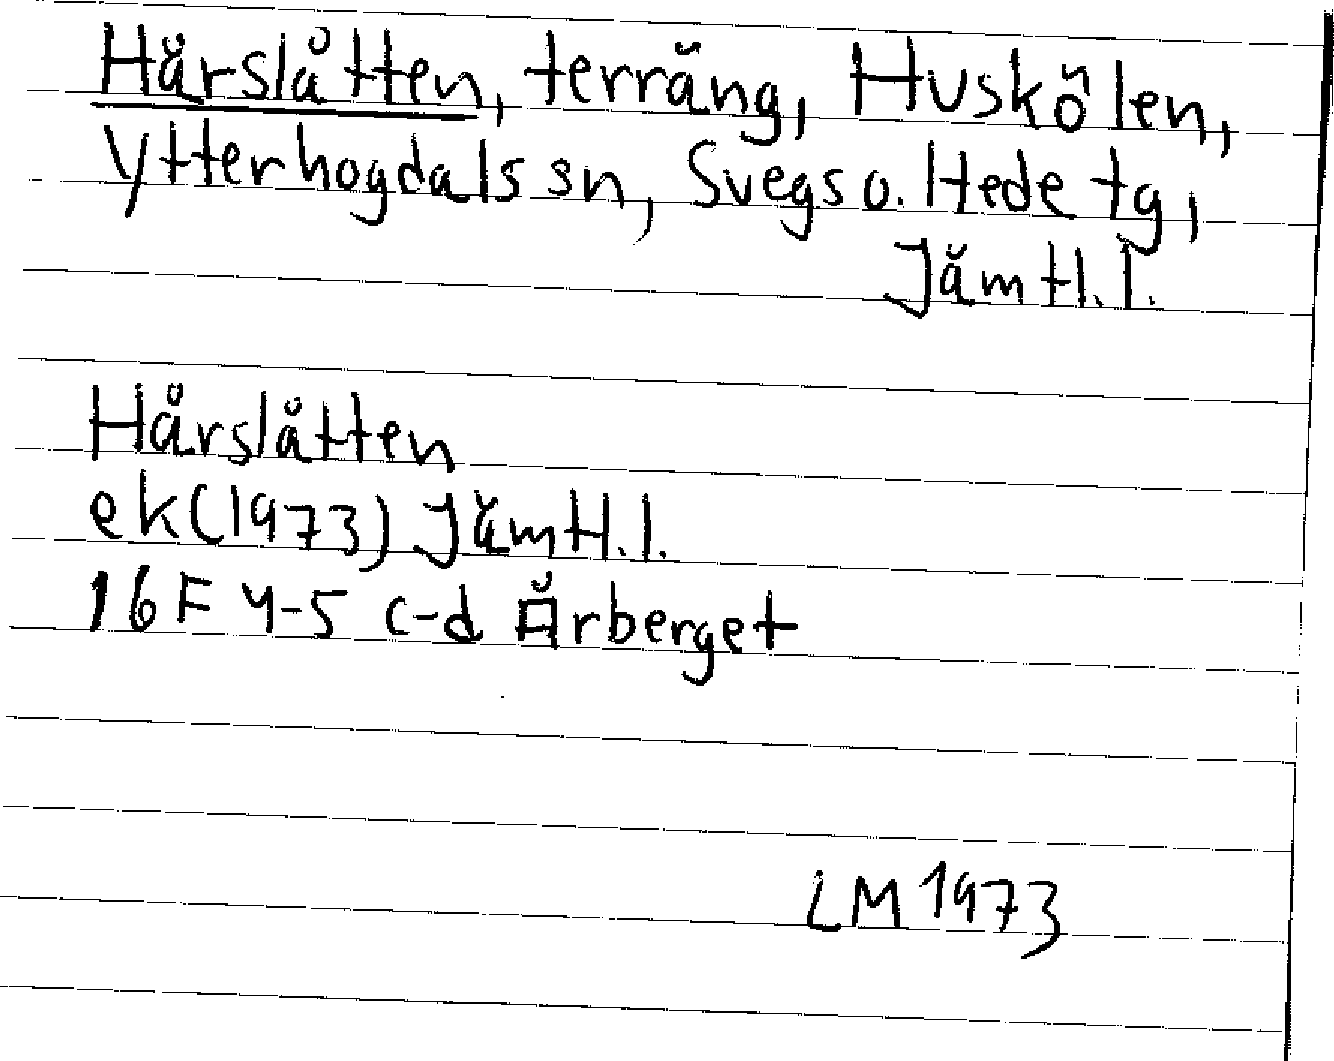 Hårslåtten, terräng, Huskölen,
Ytterhogdals sn, Svegs o. Hede tg,
Jämtl.l.
Hårslåtten
ek(1973) Jämtl.l.
16 F 4-5 c-d Ärberget
LM 1973